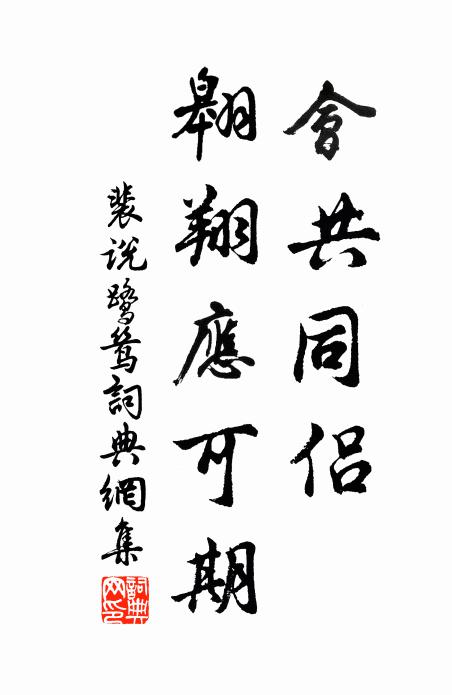 會共同侶
翱翔應可期
裴說鷺鷥詞典網集
詞典
网印